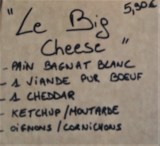 "Le Big 5,50€
Cheese "
- PAIN BAGNAT BLANC
- 1 VIANDE PUR BOEUF
- 1 CHEDDAR
- KETCHUP/MOUTARDE
- OIGNONS/CORNICHONS